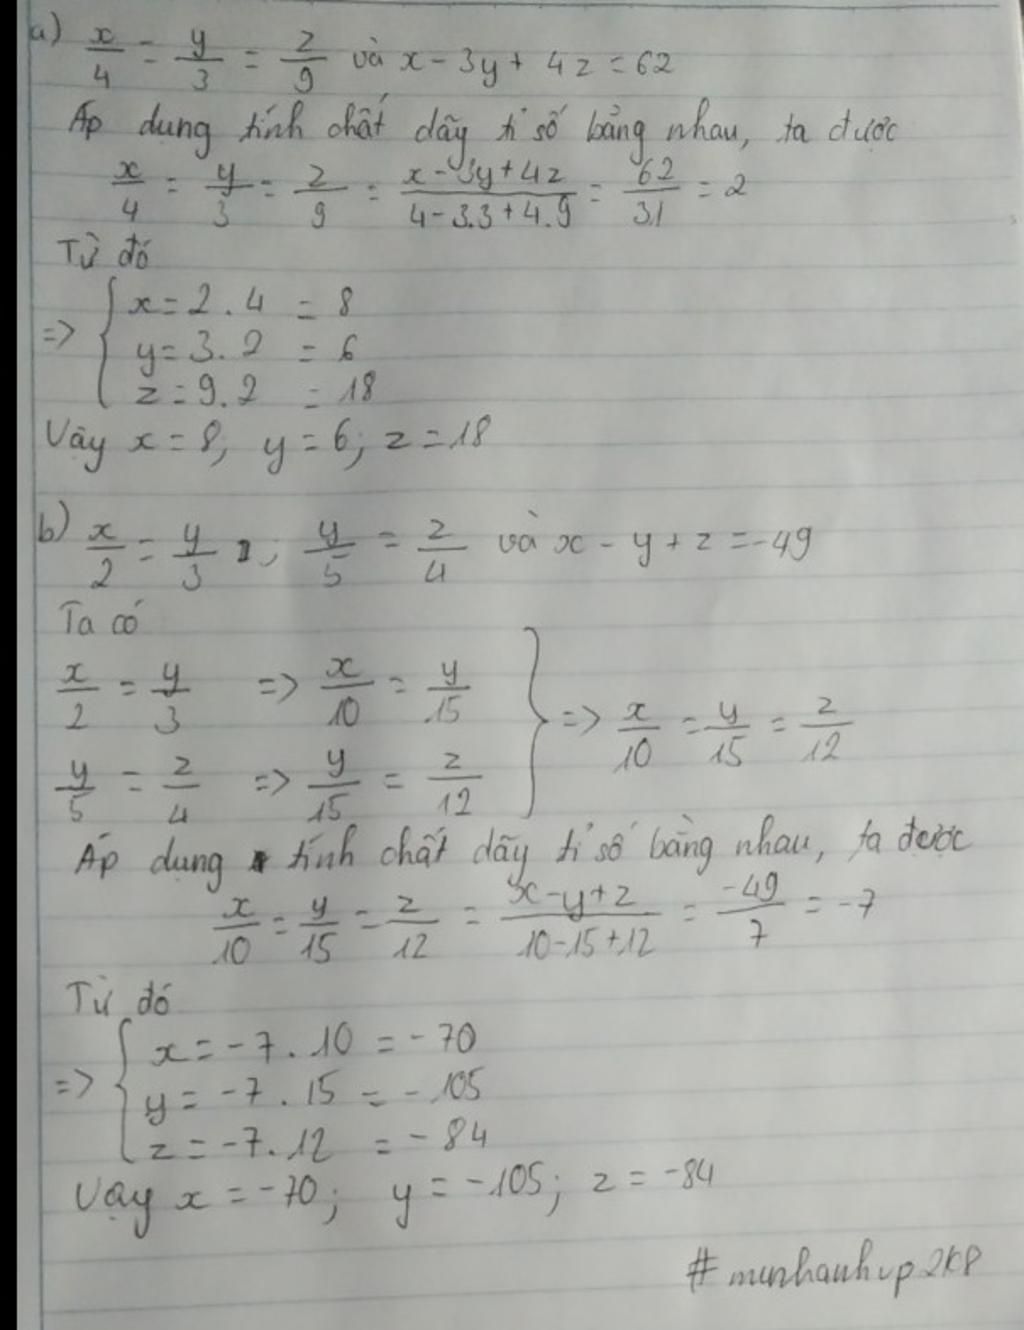 a) x/4 = y/3 = z/9 và x - 3y + 4z = 62
Áp dụng tính chất dãy tỉ số bằng nhau, ta được
x/4 = y/3 = z/9 = (x - 3y + 4z)/(4 - 3.3 + 4.9) = 62/31 = 2
Từ đó
=> { x = 2 . 4 = 8
y = 3 . 2 = 6
z = 9 . 2 = 18
Vậy x = 8; y = 6; z = 18
b) x/2 = y/3 ; y/5 = z/4 và x - y + z = -49
Ta có
x/2 = y/3 => x/10 = y/15
y/5 = z/4 => y/15 = z/12 } => x/10 = y/15 = z/12
Áp dụng tính chất dãy tỉ số bằng nhau, ta được
x/10 = y/15 = z/12 = (x - y + z)/(10 - 15 + 12) = -49/7 = -7
Từ đó
=> { x = -7 . 10 = -70
y = -7 . 15 = -105
z = -7 . 12 = -84
Vậy x = -70; y = -105; z = -84